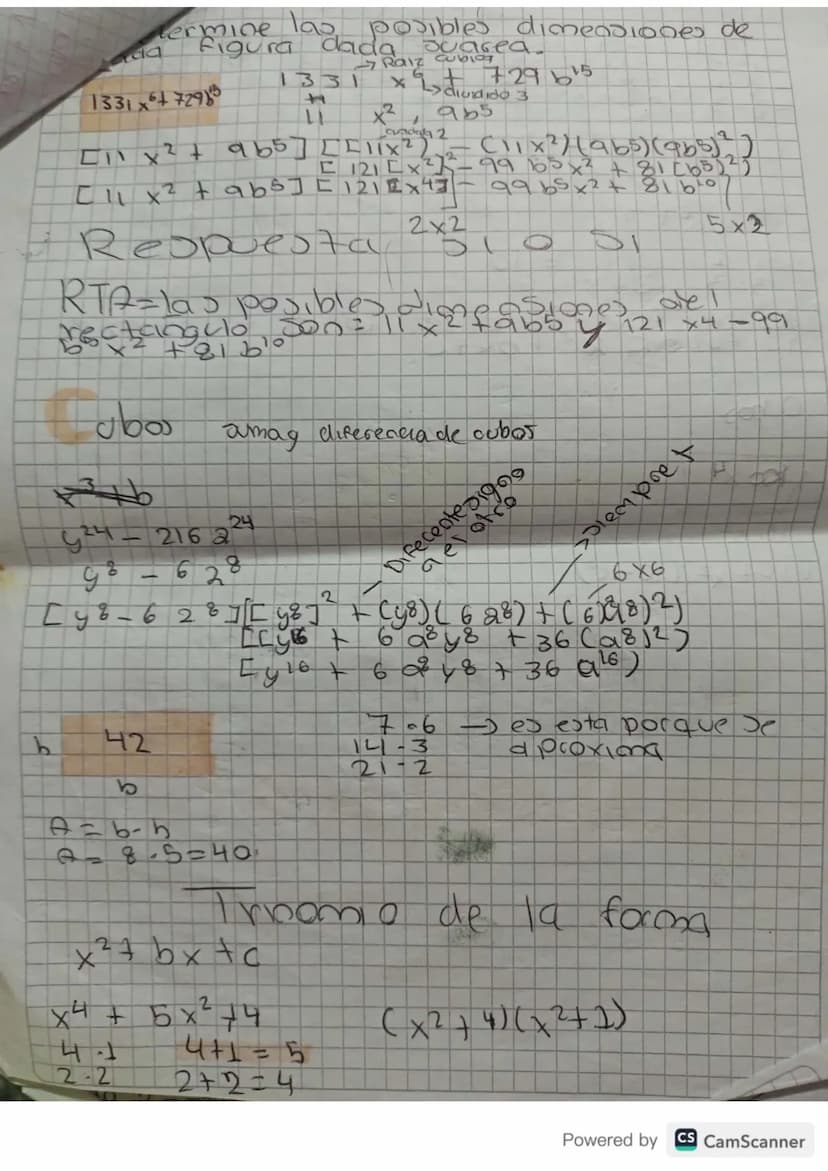 termine las posibles dimensiones de
figura dada su area.
→ Raiz cubica
1331 x⁶ + 729 b¹⁵
↳ dividido 3
1331x⁶+729b¹⁵
11 x² , 9b5
cuadrada 2
[11 x² + 9b5] [[11x²)² - (11x²)(9b5)(9b5)²)
[121[x²]² - 99 b5x² + 81[b5)²)
[11 x² + 9b5] [121[x4] - 99 b5x² + 81b¹⁰]
2x2 5x2
Respuesta SI O SI
RTA= las posibles dimensiones del
rectangulo son = 11x² + 9b5 y 121 x4 - 99
b5 x² + 81 b¹⁰
Cubos amag diferencia de cubos
x³ + b
y²⁴ - 216 a²⁴
Diferente signo
a el otro
→ siempre x
y⁸ - 6 a⁸
6x6
[y8 - 6 a8][[y8]² + (y8)(6a8) + (6)(a8)²)
[[y16 + 6 a⁸y8 + 36 (a8)²)
[y16 + 6 a⁸ y8 + 36 a¹⁶)
7 - 6 → es esta porque se
h 42 14 - 3 aproxima
21 - 2
b
A = b - h
A = 8 . 5 = 40.
Trinomio de la forma
x² + bx + c
x4 + 5x² + 4 (x² + 4)(x² + 1)
4 . 1 4+1 = 5
2 - 2 2+2 = 4
Powered by CS CamScanner